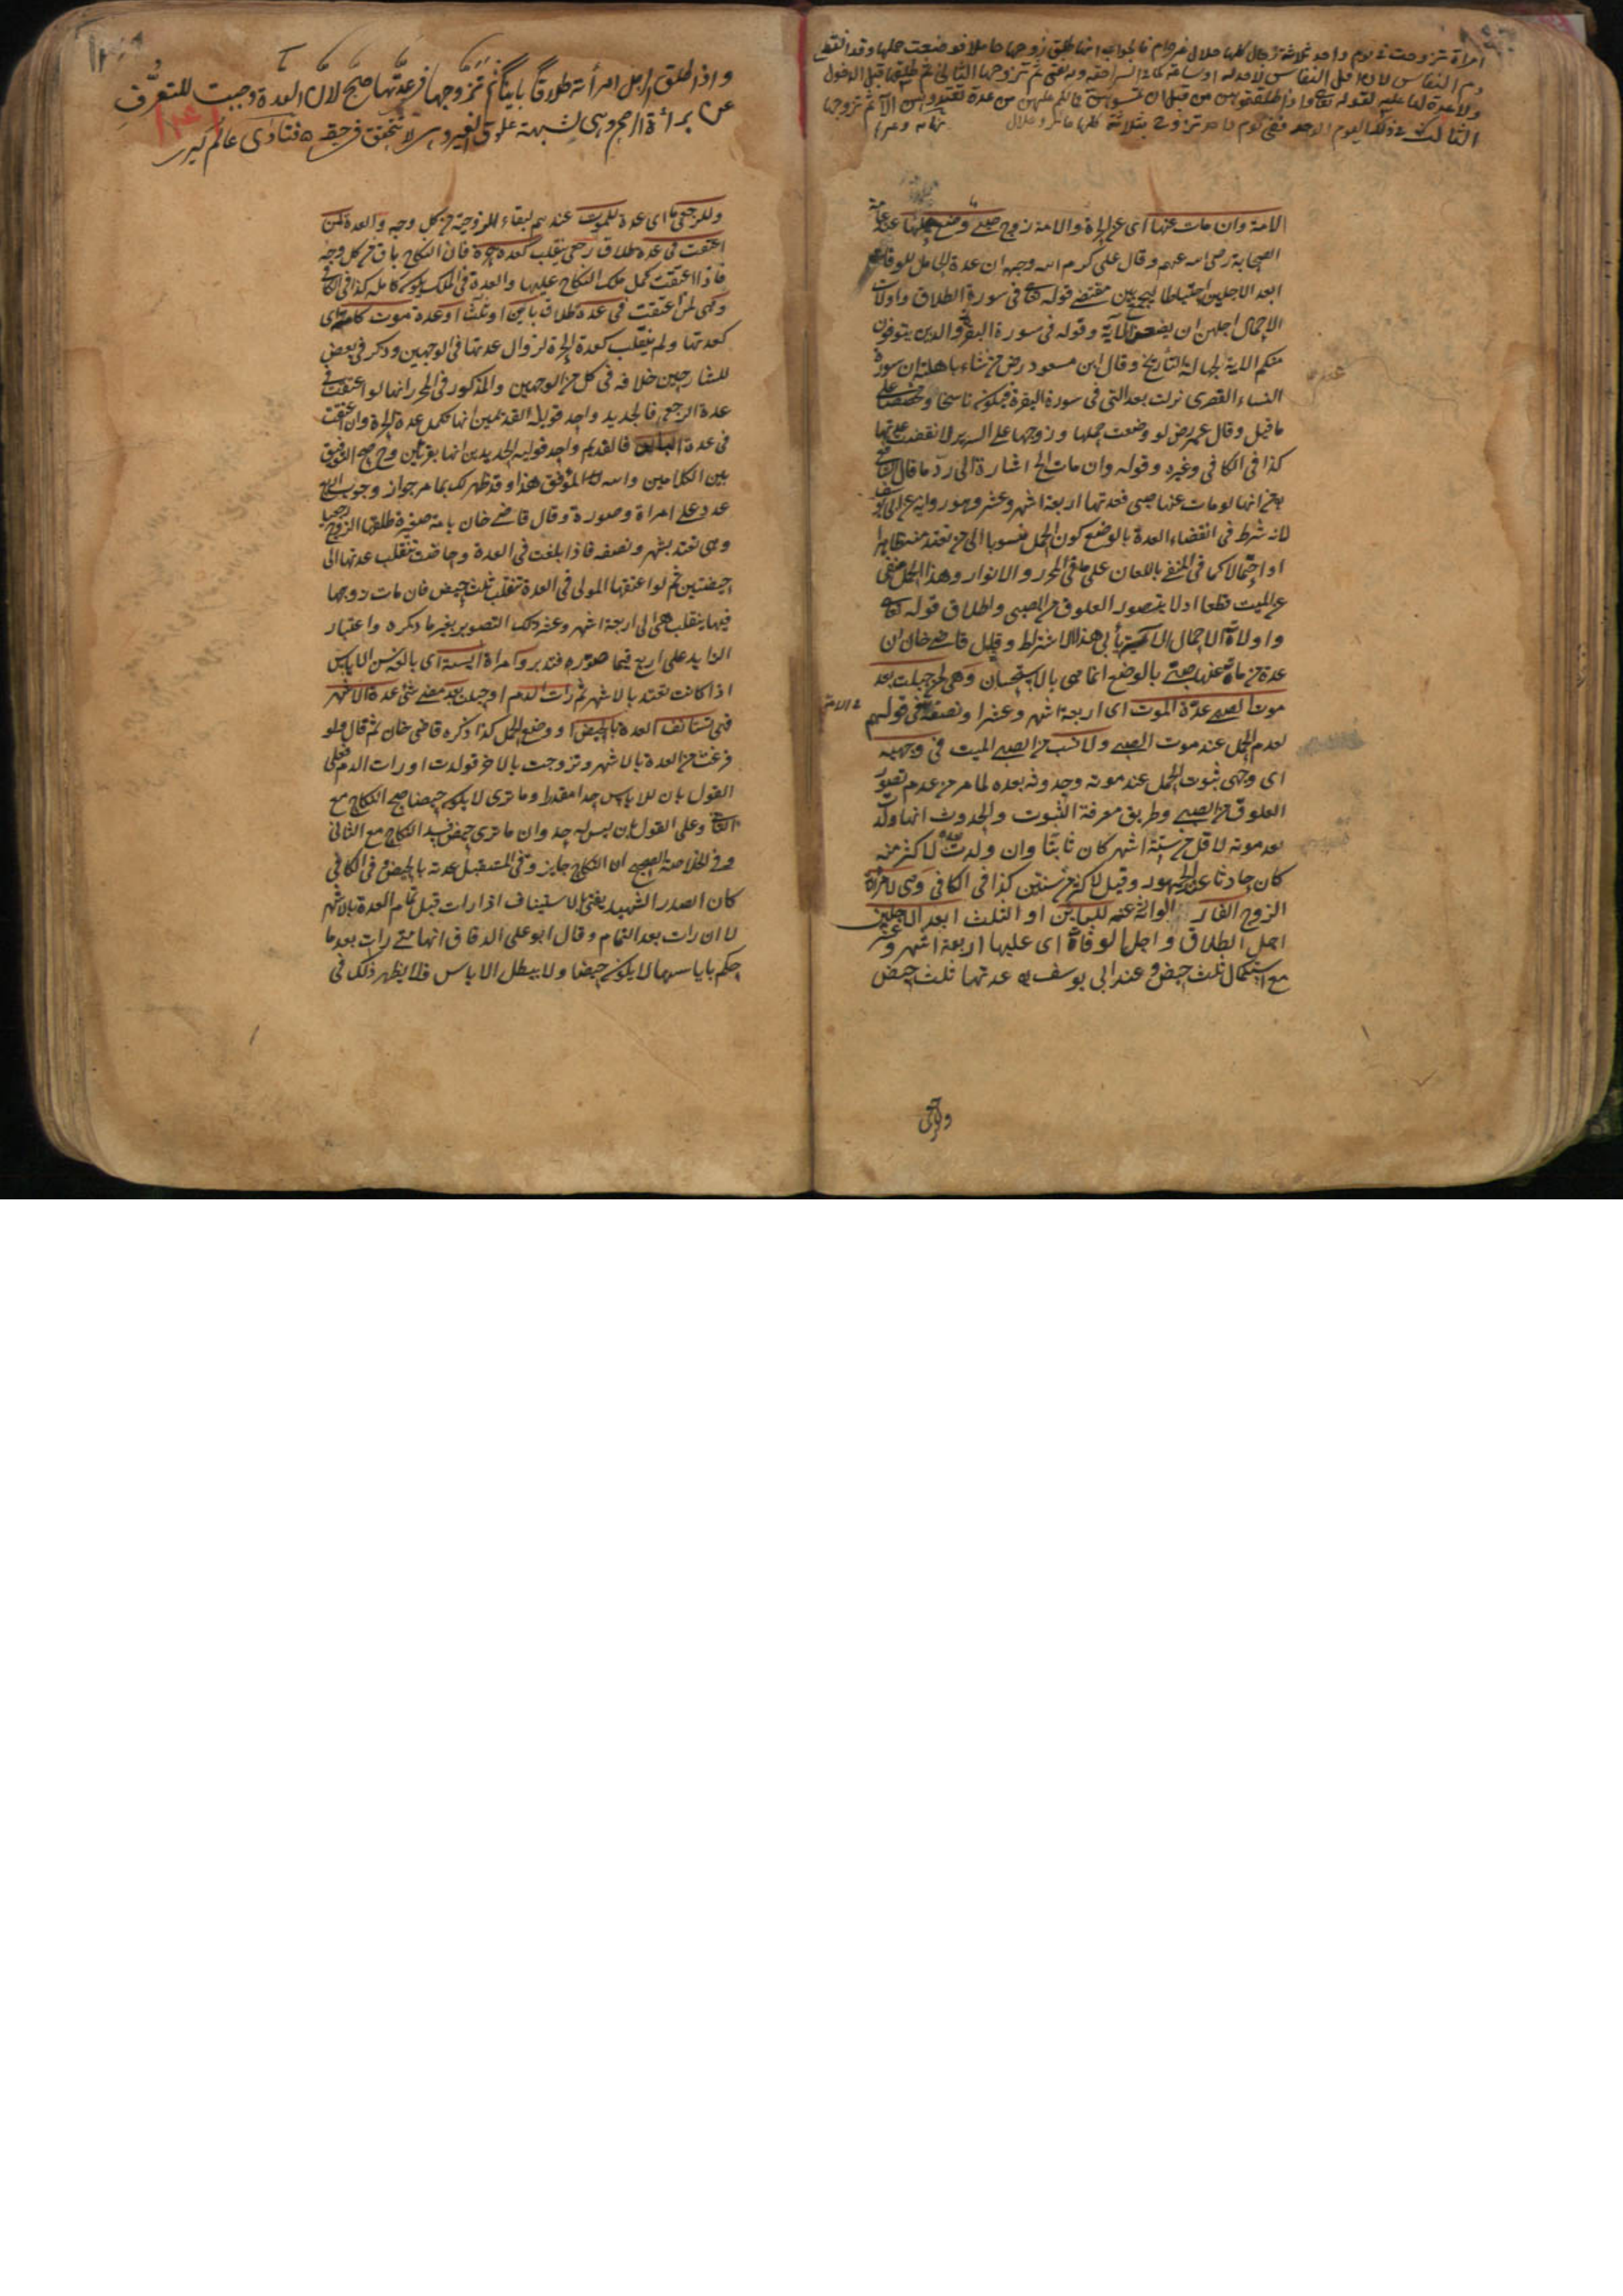 امراة تزوجت في يوم واحد ثلاثة رجال كلها حلال غير حرام فالجواب انها طلق زوجها حاملا فوضعت حملها وقد انقطع
دم النفاس لان اقل النفاس لا حد له ثم تزوجها الثاني ثم طلقها قبل الدخول
ولا عدة لها عليه لقوله تعالى واذا طلقتموهن من قبل ان تمسوهن فما لكم عليهن من عدة تعتدونها الآية ثم تزوجها
الثالث في ذلك اليوم الواحد ففي يوم واحد تزوجت بثلاثة كلها حلال
الامة وان مات عنها اى عن الحرة والامة زوج صبى وضع حملها عند عامة
الصحابة رضى الله عنهم وقال على كرم الله وجهه ان عدة الحامل للوفاة
ابعد الاجلين احتياطا ليجمع بين مقتضى قوله تعالى فى سورة الطلاق واولات
الاحمال اجلهن ان يضعن الآية وقوله فى سورة البقرة والذين يتوفون
منكم الاية لجهالة التأريخ وقال ابن مسعود رض من شاء باهلته ان سورة
النساء القصرى نزلت بعد التى فى سورة البقرة فيكون ناسخا ومخصصا على
ما قيل وقال عمر رض لو وضعت حملها وزوجها على السرير لانقضت عدتها
كذا فى الكافى وغيره وقوله وان مات الخ اشارة الى رد ما قال الشافعى
من انها لو مات عنها صبى فعدتها اربعة اشهر وعشر وهو رواية عن ابى يوسف
لانه شرط فى انقضاء العدة بالوضع كون الحمل منسوبا الى من تعتد منه ظاهرا
او احتمالا كما فى المنفى باللعان على ما فى المحرر والانوار وهذا الحمل منفى
عن الميت قطعا اذ لا يتصور العلوق من الصبى واطلاق قوله تعالى
واولات الاحمال الآية يأبى هذا الاشتراط وقيل قاضى خان ان
عدة من مات عنها صبى بالوضع انما هى بالاستحسان وهى لمن حبلت بعد
موت الصبى عدة الموت اى اربعة اشهر وعشرا ونصفه فى قولهم
لعدم الحمل عند موت الصبى ولا نسب من الصبى الميت فى وجهيه
اى وجهى ثبوت الحمل عند موته وحدوثه بعده لما مر من عدم تصور
العلوق من الصبى وطريق معرفة الثبوت والحدوث انها ولدت
بعد موته لاقل من ستة اشهر كان ثابتا وان ولدت لاكثر منه
كان حادثا عند الجمهور وقيل لاكثر من سنتين كذا فى الكافى وهى لامراة
الزوج الفار للباين او الثلث ابعد الاجلين
اجل الطلاق واجل الوفاة اى عليها اربعة اشهر وعشر
مع استكمال ثلث حيض وعند ابى يوسف عدتها ثلث حيض
وللرجعى
واذا طلق الرجل امرأته طلاقا باينا ثم تزوجها فى عدتها صح لان العدة وجبت للتعرف
عن براءة الرحم وهى لشبهة علوق الغير وهى لا تتحقق فى حقه ه فتاوى عالم كير
وللرجعى ما اى عدة للموت عندهم لبقاء الزوجية من كل وجه والعدة لمن
اعتقت فى عدة طلاق رجعى ينقلب كعدة حرة فان النكاح باق من كل وجه
فاذا اعتقت كمل ملك النكاح عليها والعدة فى الملك يكون كاملة كذا فى الكافى
وهى لمن اعتقت فى عدة طلاق باين او ثلث او عدة موت كامة اى
كعدتها ولم ينقلب كعدة الحرة لزوال عدتها فى الوجهين وذكر فى بعض
الشارحين خلافه فى كل من الوجهين والمذكور فى المحرر انها لو اعتقت فى
عدة الرجعى فالجديد واحد قوليه القديمين انها تكمل عدة الحرة وان اعتقت
فى عدة الباين فالقديم واحد قوليه الجديدين انها بقرئين وح صح التوفيق
بين الكلامين والله الموفق هذا وقد ظهر لك بما مر جواز وجوب اربع
عدد على امراة وصورته وقال قاضى خان بامة صغيرة طلقها الزوج رجعيا
وهى تعتد بشهر ونصفه فاذا بلغت فى العدة وحاضت تنقلب عدتها الى
حيضتين ثم لو اعتقها المولى فى العدة تنقلب ثلث حيض فان مات زوجها
فيها ينقلب هى الى اربعة اشهر وعشر ذلك التصوير بغير ما ذكره واعتبار
الزايد على اربع فيما صوره فتدبر وامراة ايسة اى بالغة سن الاياس
اذا كانت تعتد بالاشهر ثم رات الدم او حبلت بعد مضى شىء عدة الاشهر
فهى تستانف العدة بالحيض او وضع الحمل كذا ذكره قاضى خان ثم قال ولو
فرغت من العدة بالاشهر وتزوجت بالاخر فولدت او رات الدم فعلى
القول بان للاياس حدا مقدرا وما ترى لا يكون حيضا صح النكاح مع
الثانى وعلى القول بان ليس له حد وان ما ترى حيض فسد النكاح مع الثانى
وفى الخلاصة الصحيح ان النكاح جايز وفى المستقبل عدته بالحيض وفى الكافى
كان الصدر الشهيد يفتى بالاستيناف اذا رات قبل تمام العدة بالاشهر
لا ان رات بعد التمام وقال ابو على الدقاق انها متى رات بعد ما
حكم باياسها لا يكون حيضا ولا يبطل الاياس فلا يظهر ذلك فى